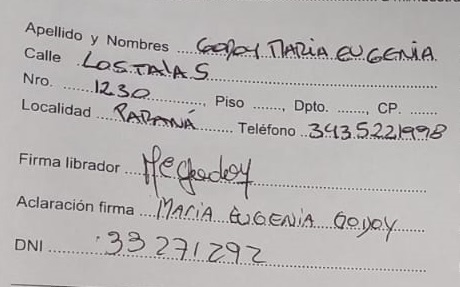 Apellido y Nombres GODOY MARIA EUGENIA
Calle LOS TALAS
Nro. 1230 Piso ......., Dpto. ......., CP. .......
Localidad PARANÁ Teléfono 3435221998
Firma librador MEGodoy
Aclaración firma MARIA EUGENIA GODOY
DNI 33271292